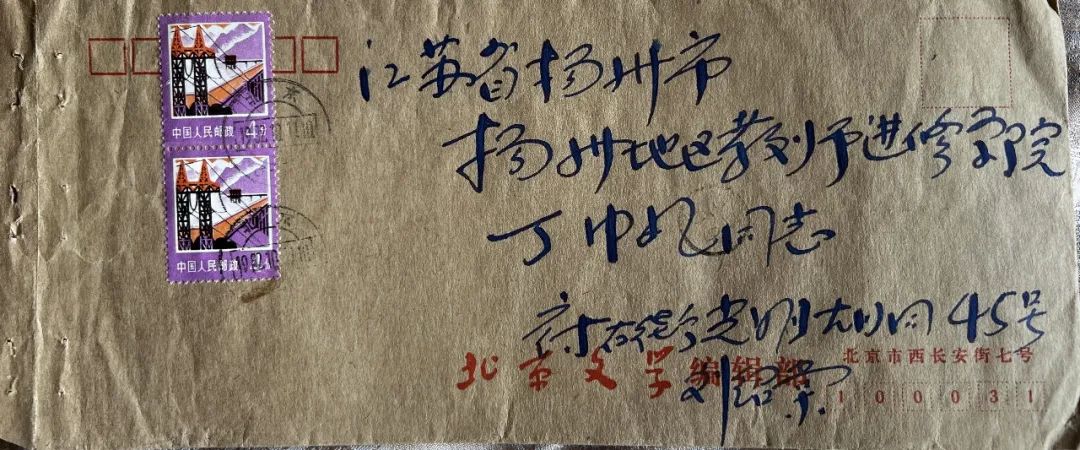 中国人民邮政 4分
中国人民邮政
江苏省扬州市
扬州地区教师进修学院
丁帆同志
府右街光明胡同45号
刘绍棠
北京文学编辑部
北京市西长安街七号
100031